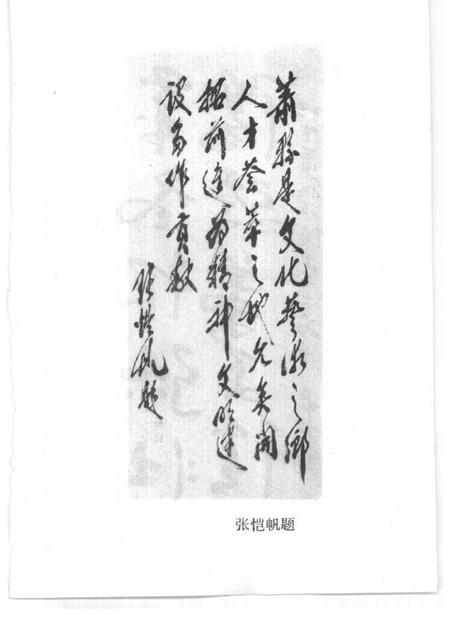 萧县是文化艺术之乡
人才荟萃之地允矣开
拓前进为精神文明建
设多作贡献
张恺帆题
张恺帆题